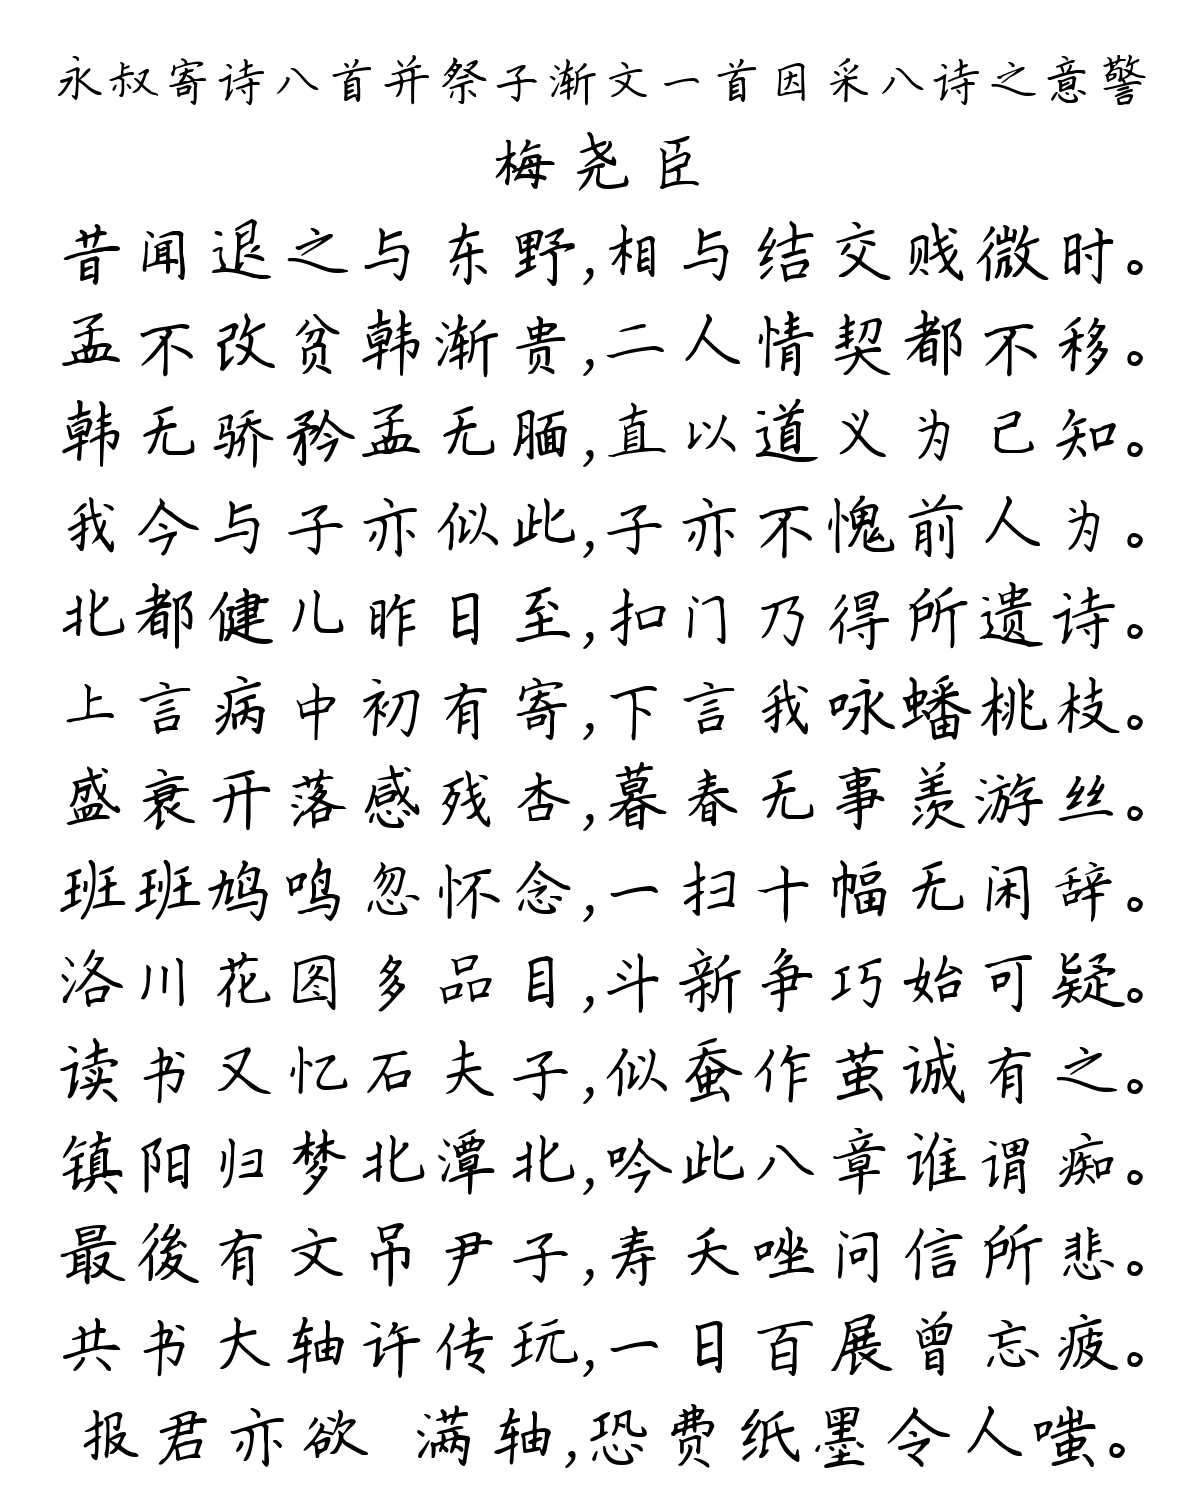 永叔寄诗八首并祭子渐文一首因采八诗之意警
梅尧臣
昔闻退之与东野,相与结交贱微时。
孟不改贫韩渐贵,二人情契都不移。
韩无骄矜孟无腼,直以道义为己知。
我今与子亦似此,子亦不愧前人为。
北都健儿昨日至,扣门乃得所遗诗。
上言病中初有寄,下言我咏蟠桃枝。
盛衰开落感残杏,暮春无事羡游丝。
班班鸠鸣忽怀念,一扫十幅无闲辞。
洛川花图多品目,斗新争巧始可疑。
读书又忆石夫子,似蚕作茧诚有之。
镇阳归梦北潭北,吟此八章谁谓痴。
最後有文吊尹子,寿夭唑问信所悲。
共书大轴许传玩,一日百展曾忘疲。
报君亦欲 满轴,恐费纸墨令人嗤。